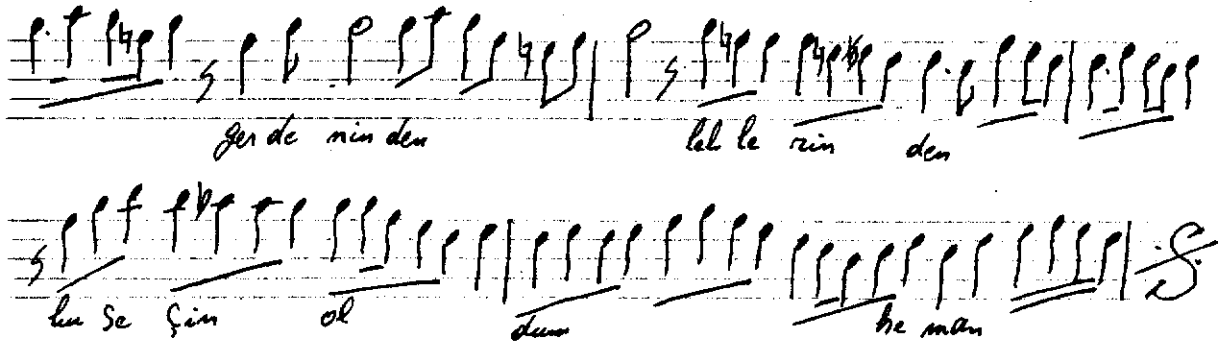 ger de nin den leb le rin den
bu se çin ol dum he man